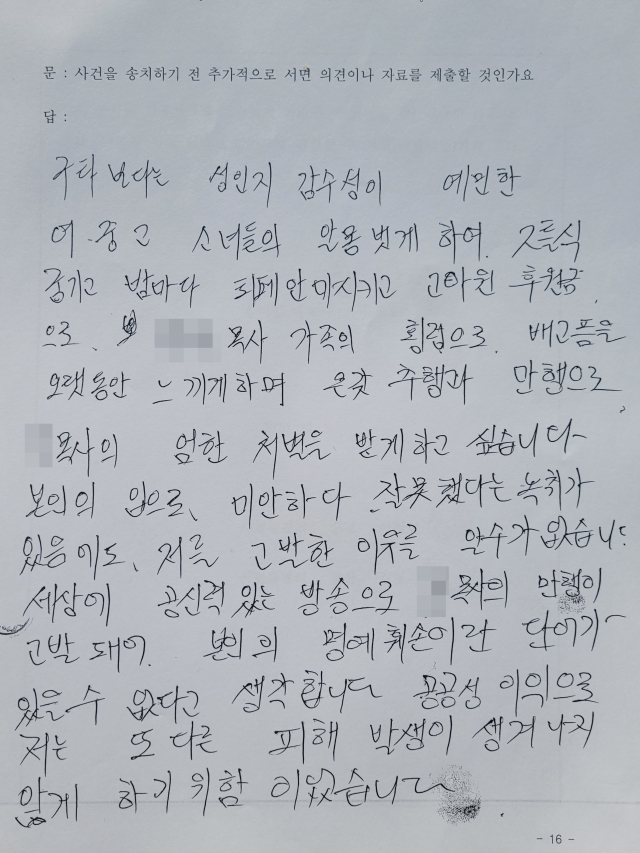 문 : 사건을 송치하기 전 추가적으로 서면 의견이나 자료를 제출할 것인가요
답 :
구타 보다는 성인지 감수성이 예민한
여.중고 소녀들의 알몸 벗게 하여.
굶기고 밤마다 고아원 후원금
으로. 목사 가족의 횡령으로. 배고픔을
오랫동안 느끼게하며 온갖 추행과 만행으로,
목사의 엄한 처벌을 받게하고 싶습니다
본인의 입으로, 미안하다 잘못했다는 녹취가
있음에도, 저를 고발한 이유를 알수가없습니다
세상에 공신력 있는 방송으로 목사의 만행이
고발 돼어. 본인의 명예훼손이란 단어가
있을수 없다고 생각합니다 공공성 이익으로
저는 또 다른 피해 발생이 생겨나지
않게 하기위함 이었습니다
- 16 -